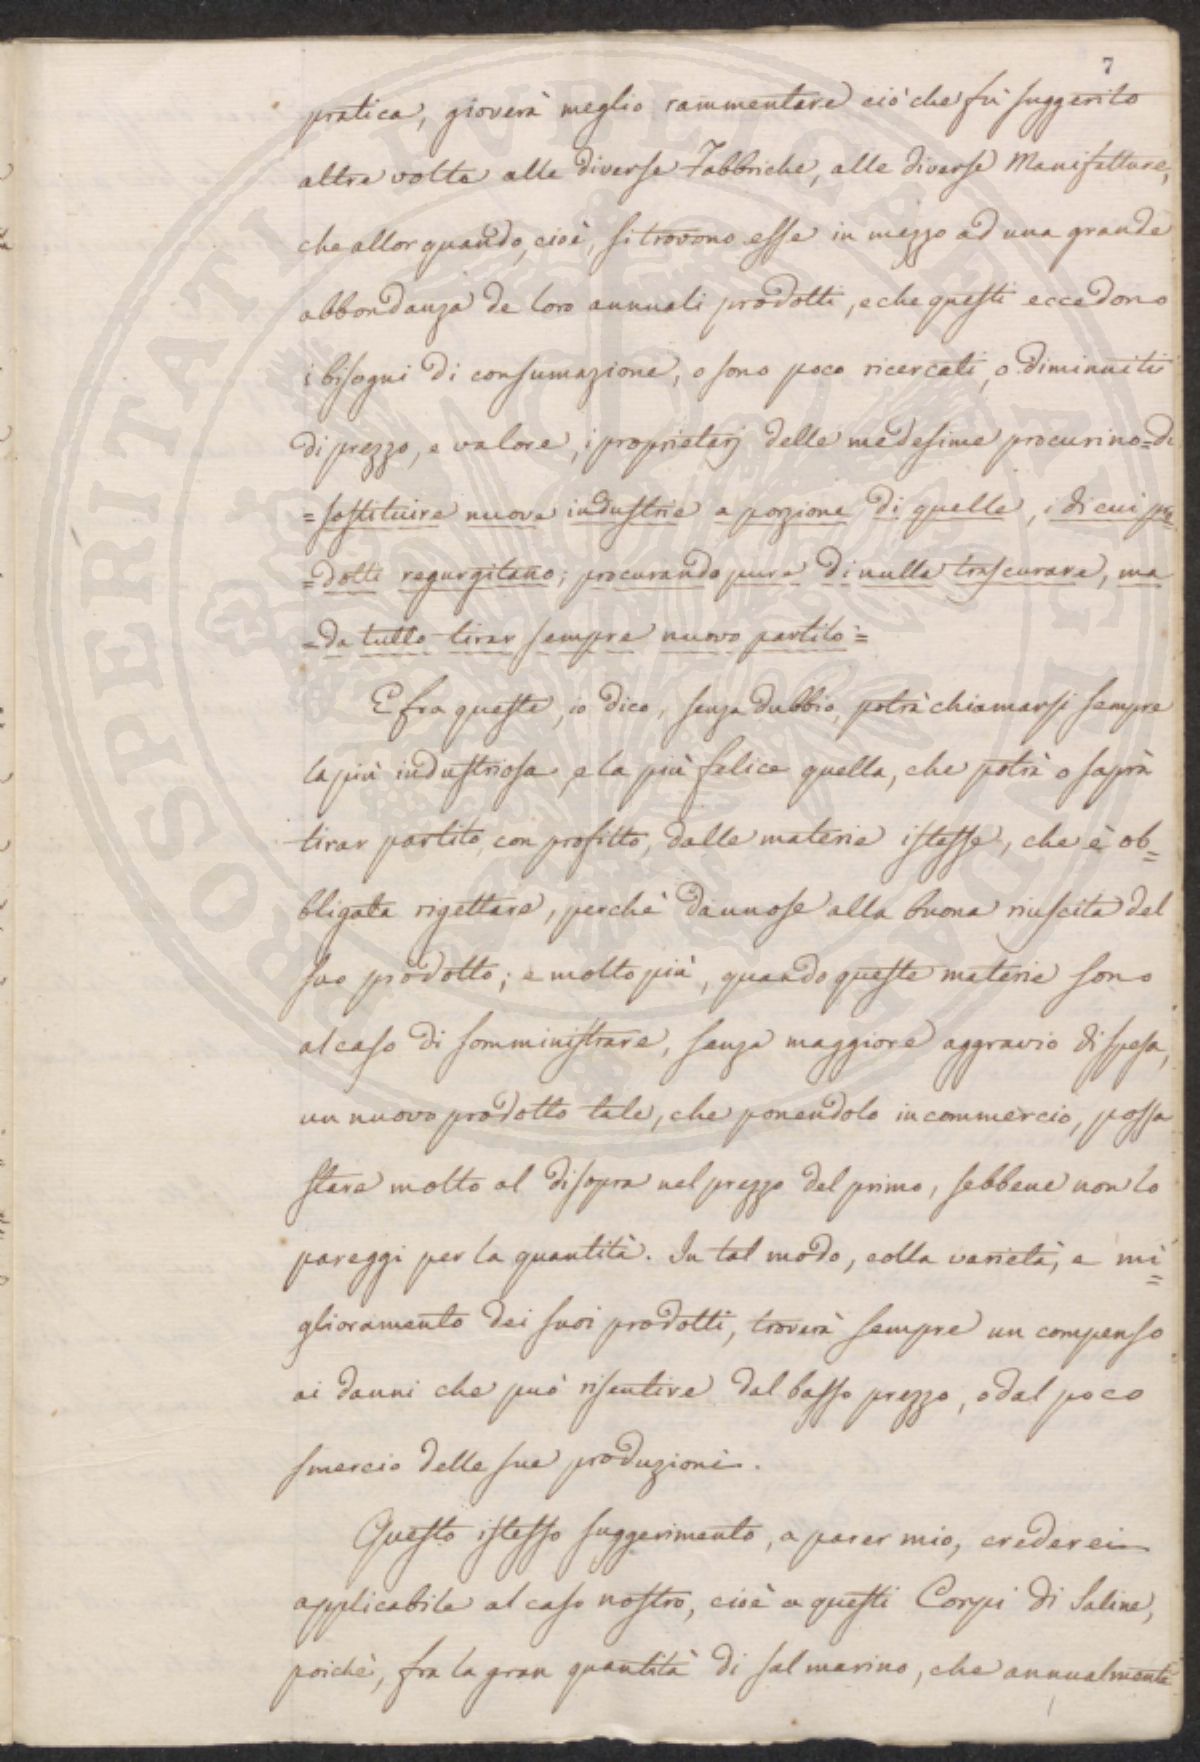 7
pratica, gioverà meglio rammentare ciò che fù suggerito
altre volte alle diverse Fabbriche, alle diverse Manifatture,
che allor quando, cioè, si trovono esse in mezzo ad una grande
abbondanza de loro annuali prodotti, e che questi eccedono
i bisogni di consumazione, o sono poco ricercati, o diminuiti
di prezzo, e valore, i proprietarj delle medesime procurino =di
=sostituire nuove industrie a porzione di quelle, i di cui pro=
=dotti regurgitano; procurando pure di nulla trascurare, ma
=da tutto tirar sempre nuovo partito=
E fra queste, io dico, senza dubbio, potrà chiamarsi sempre
la più industriosa, e la più felice quella, che potrà o saprà
tirar partito, con profitto, dalle materie istesse, che è ob=
bligata rigettare, perchè dannose alla buona riuscita del
suo prodotto; e molto più, quando queste materie sono
al caso di somministrare, senza maggiore aggravio di spesa,
un nuovo prodotto tale, che ponendolo in commercio, possa
stare molto al disopra nel prezzo del primo, sebbene non lo
pareggi per la quantità. In tal modo, colla varietà, e mi=
glioramento dei suoi prodotti, troverà sempre un compenso
ai danni che può risentire dal basso prezzo, o dal poco
smercio delle sue produzioni.
Questo istesso suggerimento, a parer mio, crederei
applicabile al caso nostro, cioè a questi Corpi di Saline,
poichè, fra la gran quantità di sal marino, che annualmente
PROSPERITATI PVBLICAE